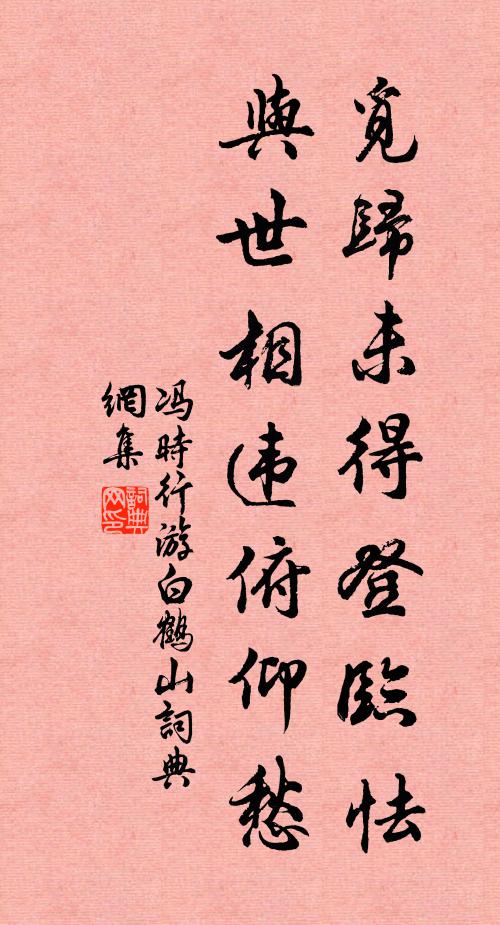 覓歸未得登臨怯
與世相违俯仰愁
冯時行游白鶴山詞典
網集
詞典网印